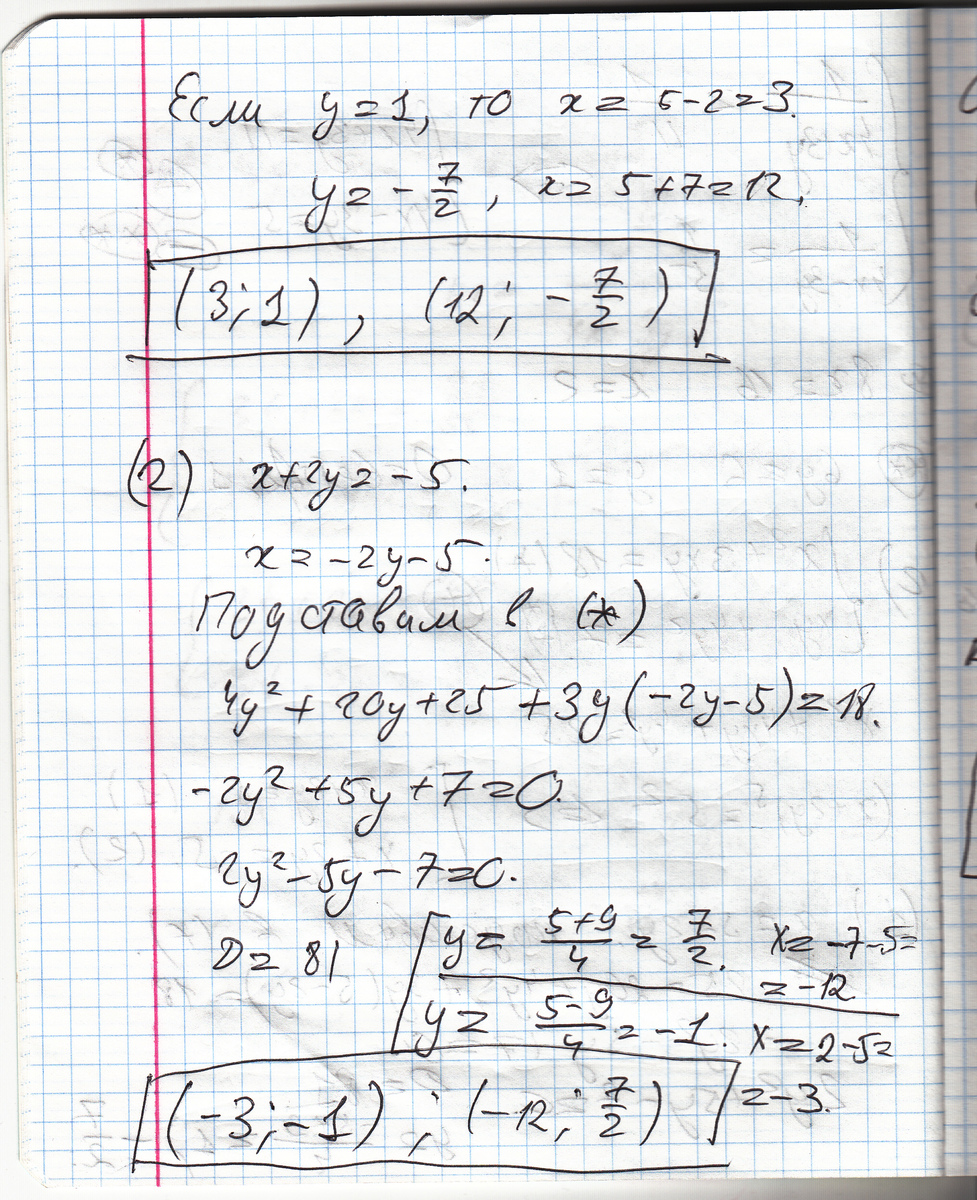 Если y=1, то x = 5-2=3.
y = -7/2, x = 5+7=12,
(3;1), (12; -7/2)
(2) x+2y=-5.
x = -2y-5.
Подставим в (*)
4y²+20y+25+3y(-2y-5)=18.
-2y²+5y+7=0.
2y²-5y-7=0.
D=81
y = (5+9)/4 = 7/2. x=-7-5=
=-12
y = (5-9)/4 = -1. x=2-5=
=-3.
(-3;-1); (-12; 7/2)